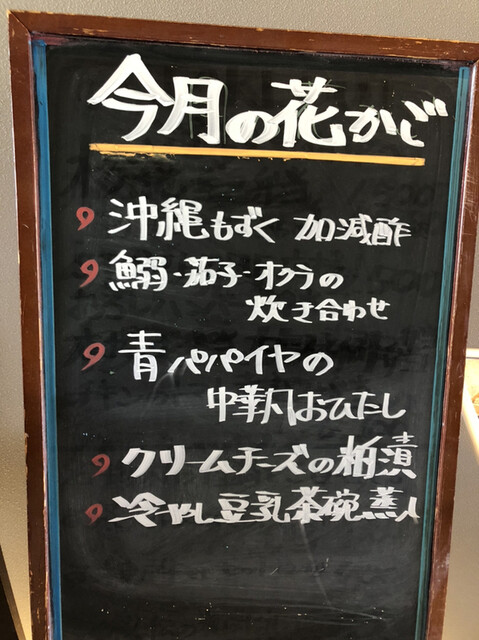 今月の花かご
沖縄もずく 加減酢
鰯・茄子・オクラの
炊き合わせ
青パパイヤの
中華風おひたし
クリームチーズの粕漬
冷やし豆乳茶碗蒸し